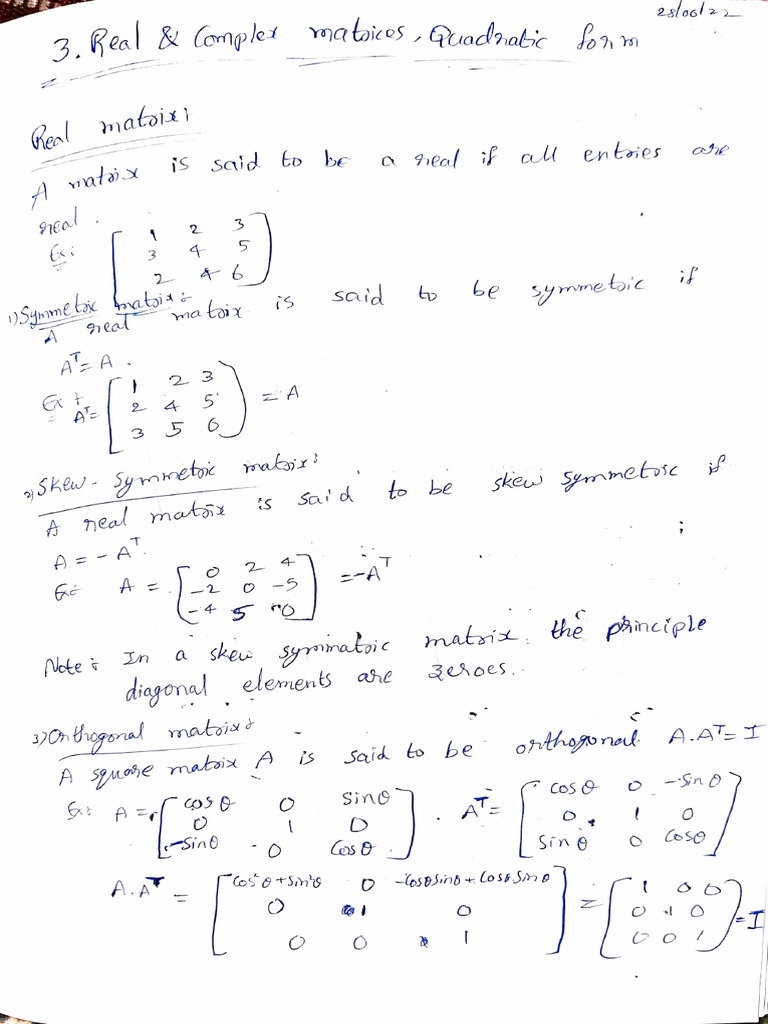 28/06/22
3. Real & Complex matrices, Quadratic form
Real matrix:
A matrix is said to be a real if all entries are
real.
Ex: [ 1 2 3
3 4 5
2 4 6 ]
1) Symmetric matrix:
A real matrix is said to be symmetric if
Aᵀ = A.
Ex: Aᵀ = [ 1 2 3
2 4 5
3 5 6 ] = A
2) Skew-symmetric matrix:
A real matrix is said to be skew symmetric if
A = -Aᵀ.
Ex: A = [ 0 2 4
-2 0 -5
-4 5 0 ] = -Aᵀ
Note: In a skew symmatric matrix the principle
diagonal elements are zeroes.
3) Orthogonal matrix:
A square matrix A is said to be orthogonal A.Aᵀ = I
Ex: A = [ cosθ 0 sinθ
0 1 0
-sinθ 0 cosθ ]. Aᵀ = [ cosθ 0 -sinθ
0 1 0
sinθ 0 cosθ ]
A.Aᵀ = [ cos²θ+sin²θ 0 -cosθsinθ+cosθsinθ
0 1 0
0 0 1 ] = [ 1 0 0
0 1 0
0 0 1 ] = I